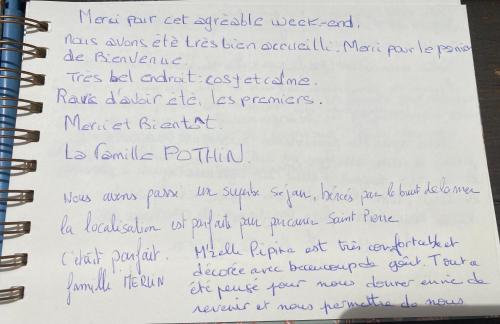 Merci pour cet agréable week-end.
Nous avons été très bien accueilli. Merci pour le panier
de Bienvenue.
Très bel endroit: cosy et calme.
Ravis d'avoir été, les premiers.
Merci et Bientôt.
La famille POTHIN.
Nous avons passé un superbe séjour, bercés par le bruit de la mer
la localisation est parfaite pour parcourir Saint Pierre
C'était parfait.
famille MERLIN
M'zelle Pipina est très confortable et
décorée avec beaucoup de goût. Tout a
été pensé pour nous donner envie de
revenir et nous permettre de nous